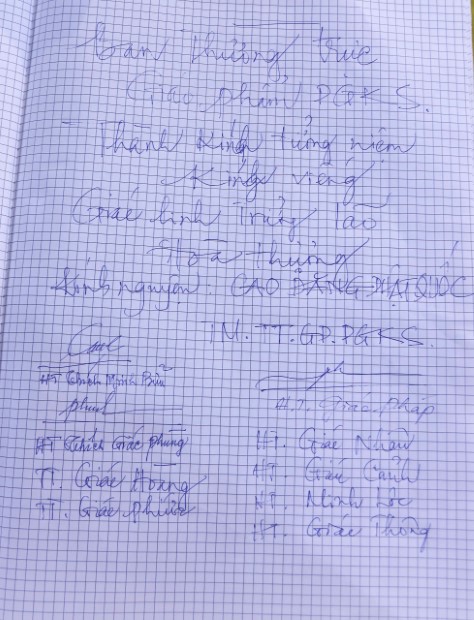 Ban Thường Trực
Giáo phẩm PGKS.
Thành kính tưởng niệm
Kính viếng
Giác linh Trưởng lão
Hoà thượng
Kính nguyện: CAO ĐĂNG PHẬT QUỐC
TM. TT. GP. PGKS.
HT Minh Bửu
HT. Giác Pháp
HT Thích Giác Phùng
HT. Giác Nhân
TT. Giác Hoàng
HT. Giác Cảnh
TT. Giác
HT. Minh Lộc
HT. Giác Thông